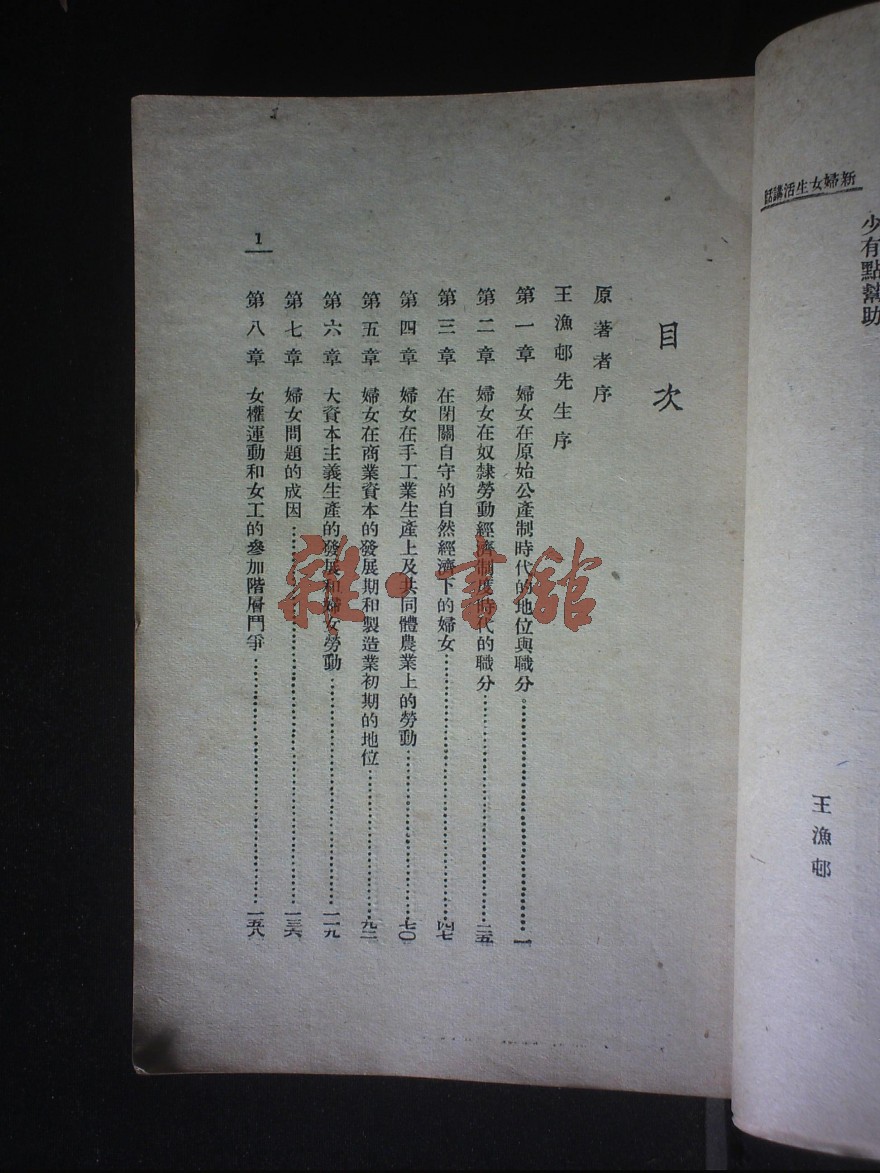 新婦女生活講話
少有點幫助
王漁邨
目次
原著者序
王漁邨先生序
第一章 婦女在原始公產制時代的地位與職分 一
第二章 婦女在奴隸勞動經濟制度時代的職分 二五
第三章 在閉關自守的自然經濟下的婦女 四七
第四章 婦女在手工業生產上及共同體農業上的勞動 七〇
第五章 婦女在商業資本的發展期和製造業初期的地位 九二
第六章 大資本主義生產的發展和婦女勞動 一一九
第七章 婦女問題的成因 一三六
第八章 女權運動和女工的參加階層鬥爭 一五八
1
雜·書館